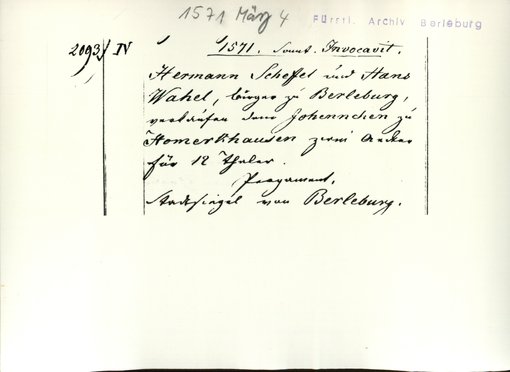 1571 März 4
Fürstl. Archiv Berleburg
2093/ IV
1571. Sonnt. Invocavit.
Hermann Scheffel und Hans
Wahel, bürger zu Berleburg,
verkaufen dem Johennchen zu
Homerkhausen zwei Aecker
für 12 Thaler.
Pergament.
Stadtsiegel von Berleburg.